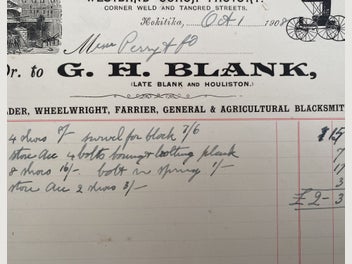 WESTLAND COACH FACTORY.
CORNER WELD AND TANCRED STREETS.
Hokitika, Oct 1 1908
Messrs Perry & Co
Dr. to G. H. BLANK,
(LATE BLANK AND HOULISTON.)
DER, WHEELWRIGHT, FARRIER, GENERAL & AGRICULTURAL BLACKSMIT
4 shoes 8/- swivel for block 7/6 15
Store Acc 4 bolts & bolting plank 7
8 shoes 16/- bolt in spring 1/- 17
Store Acc 2 shoes 3/- 3
£ 2 - 3